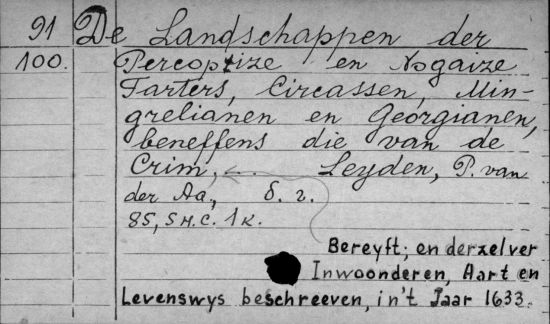 91 De Landschappen der
100. Percoptize en Nogaize
Tarters, Circassen, Min-
grelianen en Georgianen,
beneffens die van de
Crim, ... Leyden, P. van
der Aa, б. г.
85, 5 н. с. 1 к.
Bereyft; en derzelver
Inwoonderen, Aart en
Levenswys beschreeven, in't Jaar 1633.